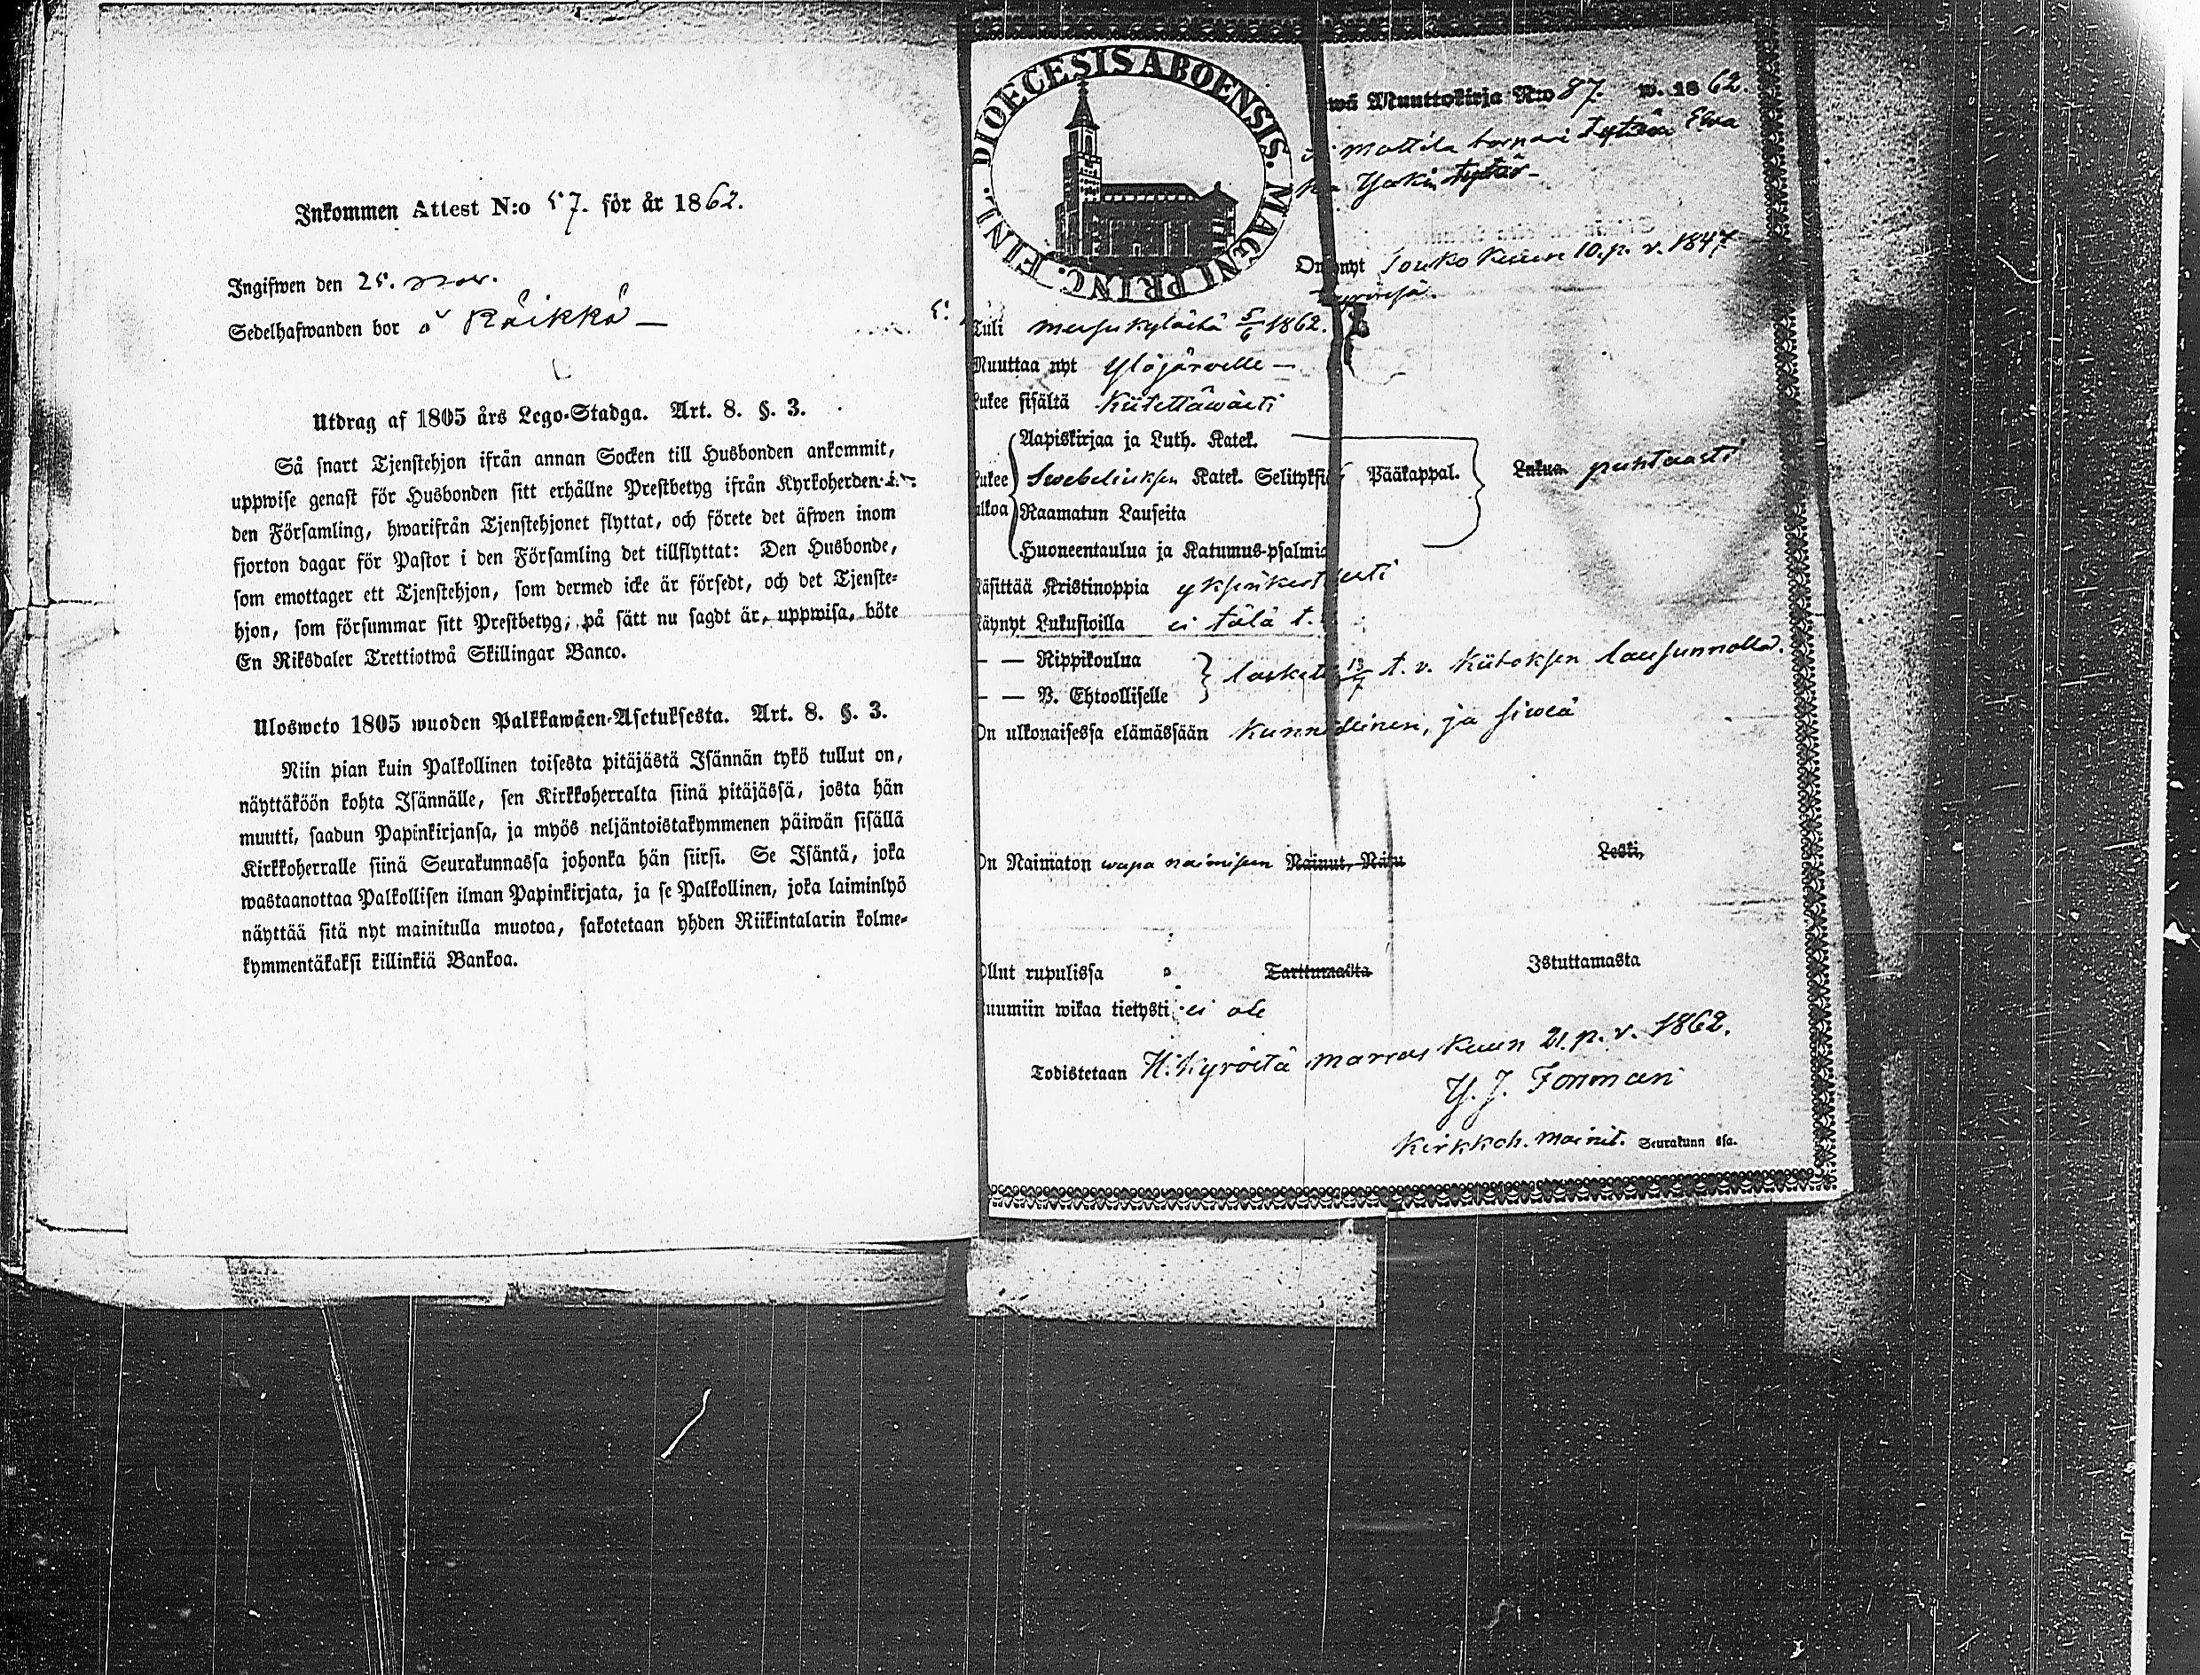 Inkommen Attest N:o 57. för år 1862.
Ingifwen den 25. Nov.
Sedelhafwanden bor å Räikkä —
Utdrag af 1805 års Lego-Stadga. Art. 8. §. 3.
Så snart Tjenstehjon ifrån annan Socken till Husbonden ankommit,
uppwise genast för Husbonden sitt erhållne Prestbetyg ifrån Kyrkoherden i
den Församling, hwarifrån Tjenstehjonet flyttat, och förete det äfwen inom
fjorton dagar för Pastor i den Församling det tillflyttat: Den Husbonde,
som emottager ett Tjenstehjon, som dermed icke är försedt, och det Tjenste-
hjon, som försummar sitt Prestbetyg, på sätt nu sagdt är, uppwisa, böte
En Riksdaler Trettiotwå Skillingar Banco.
Ulosweto 1805 wuoden Palkkawäen-Asetuksesta. Art. 8. §. 3.
Niin pian kuin Palkollinen toisesta pitäjästä Isännän tykö tullut on,
näyttäköön kohta Isännälle, sen Kirkkoherralta siinä pitäjässä, josta hän
muutti, saadun Papinkirjansa, ja myös neljäntoistakymmenen päiwän sisällä
Kirkkoherralle siinä Seurakunnassa johonka hän siirsi. Se Isäntä, joka
wastaanottaa Palkollisen ilman Papinkirjata, ja se Palkollinen, joka laiminlyö
näyttää sitä nyt mainitulla muotoa, sakotetaan yhden Riikintalarin kolme-
kymmentäkaksi killinkiä Bankoa.
DIOECESIS ABOENSIS. MAGNI PRINC. FINL.
wä Muuttokirja N:o 87. w. 1862.
Mattila torpari tytär Ewa
Jaakin tytär —
On nyt Touko kuun 10. p. v. 1847
Kyrössä.
Tuli Messukylästä 5/6 1862.
Muuttaa nyt Ylöjärwelle —
Lukee sisältä Kiitettäwästi
Aapiskirjaa ja Luth. Katek.
Lukee Swebeliuksen Katek. Selityksiä Pääkappal. Lukua puhtaasti
ulkoa Raamatun Lauseita
Huoneentaulua ja Katumus-psalmia
Käsittää Kristinoppia yksinkertaisesti
Käynyt Lukusioilla ei tälä t.
— — Rippikoulua
laskettu 13/7 t. v. Kiitoksen lausunnolla.
— — P. Ehtoolliselle
On ulkonaisessa elämässään Kunniallinen, ja siweä
On Naimaton wapa naimiseen Nainut, Näsu Leski,
Ollut rupulissa Tarttumasta Istuttamasta
Ruumiin wikaa tietysti ei ole
Todistetaan H. Kyröstä Marras kuun 21. p. v. 1862.
Y. J. Forsman
Kirkkoh. mainit. Seurakunnassa.